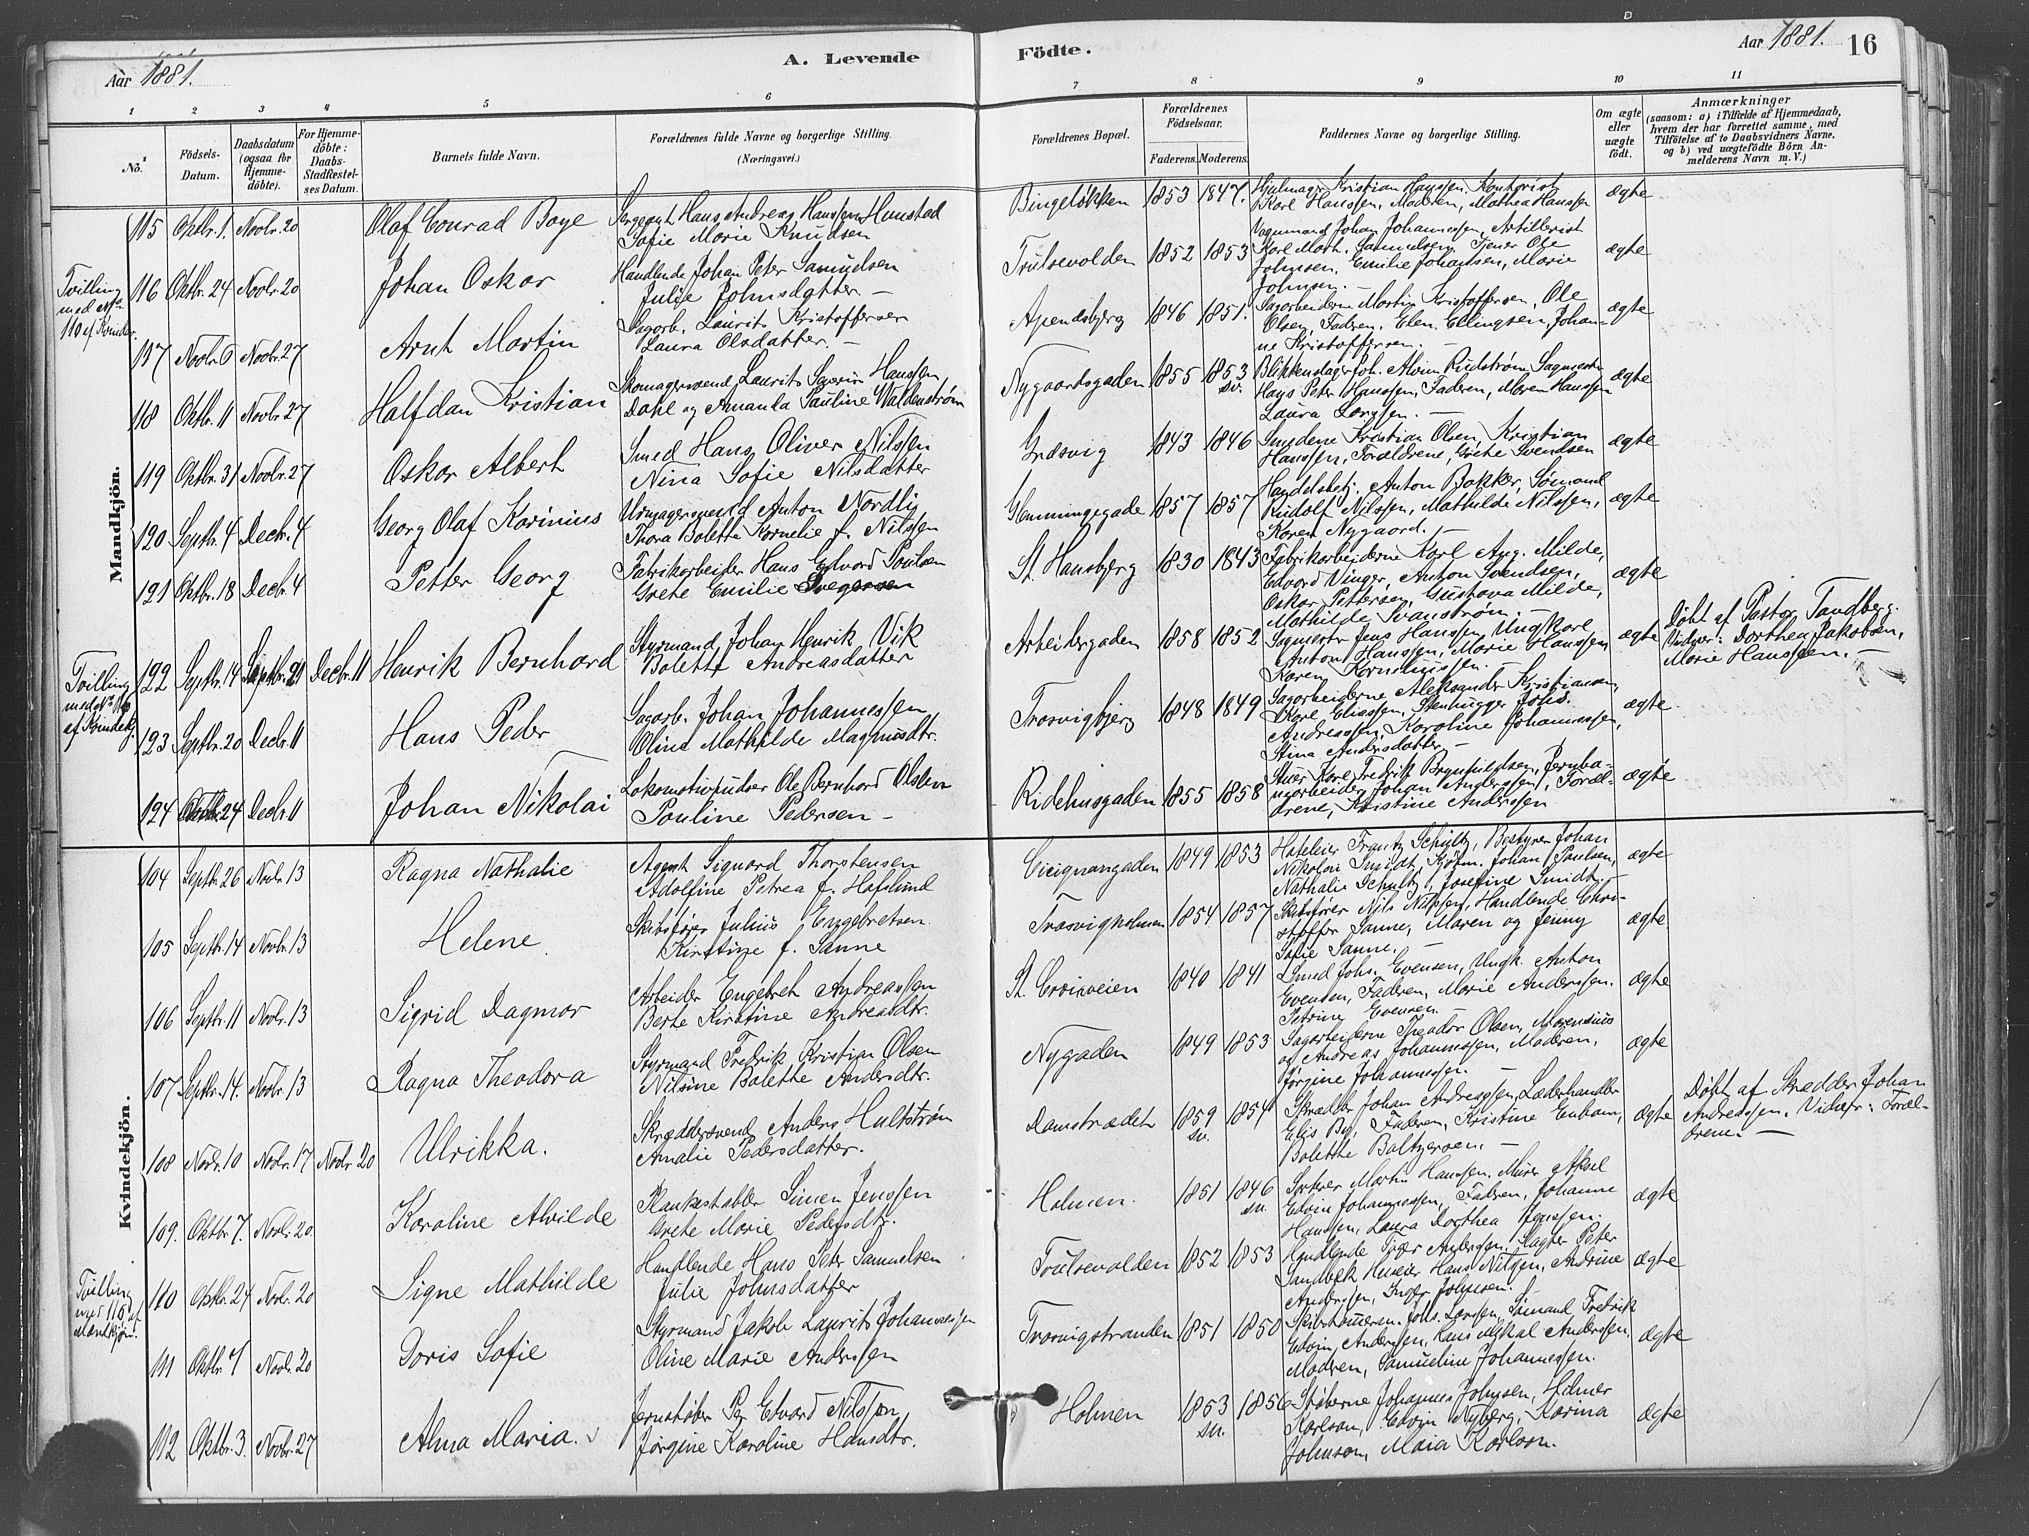 Aar 1881. A. Levende Födte. Aar 1881. 16
1 2 3 4 5 6 7 8 9 10 11
No. Födsels-Datum. Daabsdatum (ogsaa för Hjemme-döbte). For Hjemme-döbte: Daabs-Stadfæstel-ses Datum. Barnets fulde Navn. Forældrenes fulde Navne og borgerlige Stilling. (Næringsvei.) Forældrenes Bopæl. Forældrenes Födselsaar. Faderens. Moderens. Faddernes Navne og borgerlige Stilling. Om ægte eller uægte födt. Anmærkninger (saasom: a) i Tilfælde af Hjemmedaab, hvem der har forrettet samme, med Tilföielse af to Daabsvidners Navne, og b) ved uægtefödte Börn An-melderens Navn m. V.)
Mandkjön.
115 Oktbr. 1. Novbr. 20 Olaf Conrad Boye
Hans Andreas Hanssen Hunstad
Sofie Marie Knudsen
Bingeløkken 1853 1847. Hjulmager Kristian Hanssen, Kontorist
Karl Hanssen, Moderen, Mathea Hanssen
ægte
Tvilling med No 110 af Kvindek.
116 Oktbr. 24 Novbr. 20 Johan Oskar
Handlende Johan Peter Samuelsen
Julie Johnsdatter —
Trulsevolden 1852 1853
Vognmand Johan Johannessen, Artillerist
Karl Math. Samuelsen, Tjener Ole
Johnsen, Emilie Johansen, Marie
Johnsen. —
ægte
117 Novbr. 6 Novbr. 27 Arnt Martin
Sagarb. Laurits Kristoffersen
Laura Olsdatter. —
Apendsbjerg 1846 1851.
Sagarbeiderne Martin Kristoffersen, Ole
Olsen, Faderen, Elen Ellingsen, Johan-
ne Kristoffersen. —
ægte
118 Oktbr. 11 Novbr. 27 Halfdan Kristian
Skomagersvend Laurits Severin Hanssen
Dahl og Amanda Pauline Waldenstrøm
Nygaardsgaden 1855 1853 sv.
Blikkenslager Joh. Alvin Rudstrøm, Sagmester
Hans Peter Hanssen, Faderen, Maren Hanssen
Laura Larssen. —
ægte
119 Oktbr. 31 Novbr. 27 Oskar Albert
Smed Hans Oliver Nilssen
Nina Sofie Nilsdatter
Græsvig 1843 1846
Smedene Kristian Olsen, Kristian
Hanssen, Forældrene, Grete Svendsen
ægte
120 Septbr. 4 Decbr. 4 Georg Olaf Karinius
Urmagersvend Anton Nordli
Thora Bolette Kornelie f. Nilssen
Gemmingegade 1857 1857
Handelsbetj. Anton Bakker, Sømand
Rudolf Nilssen, Mathilde Nilssen,
Karen Nygaard. —
ægte
121 Oktbr. 18 Decbr. 4 Petter Georg
Fabrikarbeider Hans Edvard Poulsen
Grete Emilie
St. Hansbjerg 1830 1843
Fabrikarbeiderne Karl Aug. Milde,
Edvard Vinger, Anton Svendsen,
Oskar Pettersen, Gustava Milde,
Mathilde Svanstrøm. —
ægte
Tvilling med No af Kvindekj.
122 Septbr. 14 Septbr. 21 Decbr. 11 Henrik Bernhard
Styrmand Johan Henrik Vik
Bolette Andreasdatter
Arbeidergaden 1858 1852
Sagmester Jens Hanssen, Ungkarl
Anton Hanssen, Marie Hanssen
Karen Kornelinssen.
ægte
Døbt af Pastor Tandberg.
Vidner: Dorthea Jakobsen,
Marie Hanssen. —
123 Septbr. 20 Decbr. 11 Hans Peder
Sagarb. Johan Johannessen
Oline Mathilde Magnusdtr.
Trosvigbjerg 1848 1849
Sagarbeiderne Aleksander Kristiansen,
Karl Eliassen, Stenhugger Johs.
Andreassen, Karoline Johannessen,
Stina Andersdatter —
ægte
124 24 Decbr. 11 Johan Nikolai
Lokomotivpudser Ole Bernhard Olsen
Pauline Pedersen —
Ridehusgaden 1855 1858
Karl Fredrik Brynhildsen, Jernba-
nearbeider Johan Anderssen, Foræl-
drene, Kristine Anderssen
ægte
Kvindekjön.
104 Septbr. 26 Novbr. 13 Ragna Nathalie
Agent Sigvard Thorstensen
Adolfine Petrea f. Hafslund
Cicignongaden 1849 1853
Hoteleier Frantz Schultz, Bestyrer Johan
Nikolai Smidt, Kjøbm. Johan Paulsen,
Nathalie Schultz, Josefine Smidt. —
ægte
105 Septbr. 14 Novbr. 13 Helene
Skibsfører Julius Engebretsen
Kirstine f. Sanne
Trosvigholmen 1854 1857
Skibsfører Nils Nilssen, Handlende Chri-
stoffer Sanne, Maren og Jenny
Sofie Sanne. —
ægte
106 Septbr. 11 Novbr. 13 Sigrid Dagmar
Arbeider Engebret Andreassen
Berte Kirstine Andreasdtr.
St. Croixveien 1840 1841
Smed Johs. Evensen, Ungk. Anton
Evensen, Faderen, Marie Anderssen.
Petrine Evensen.
ægte
107 Septbr. 14. Novbr. 13 Ragna Theodora
Styrmand Fredrik Kristian Olsen
Nilsine Bolette Andersdtr.
Nygaden 1849 1853
Sagarbeiderne Theodor Olsen, Marensius
og Andreas Johannessen, Moderen,
Jørgine Johannessen —
ægte
108 Novbr. 10 Novbr. 17 Novbr. 20 Ulrikka.
Skræddersvend Anders Hultstrøm
Amalie Pedersdatter.
Damstrædet 1859 sv. 1854
Skrædder Johan Andreassen, Læderhandler
Elis By, Faderen, Kristine Enbom,
Bolette Baltzersen. —
ægte
Døbt af Skrædder Johan
Andreassen. Vidner: Foræl-
drene. —
109. Oktbr. 7. Novbr. 20. Karoline Alvilde
Plankestabler Simen Jenssen
Grete Marie Pedersdtr.
Holmen. 1851 1846 sv.
Martin Hanssen, Murer Aksel
Edvin Johannessen, Faderen, Johanne
Hanssen, Laura Dorthea Jenssen.
ægte
Tvilling med 116 af Mandkjøn.
110 Oktbr. 24 Novbr. 20 Signe Mathilde
Handlende Hans Peter Samuelsen
Julie Johnsdatter
Trulsevolden 1852 1853
Handlende Anderssen, Peter
Sandbæk Huseier Hans Nilsen, Andrine
Anderssen, Inger Johnsen.
ægte
111 Oktbr. 4 Novbr. 20 Doris Sofie
Styrmand Jakob Laurits Johannessen
Oline Marie Anderssen
Trosvigstranden 1851 1850
Johs. Larssen, Sømand Fredrik
Edvin Anderssen, Hans Mikal Anderssen,
Moderen, Samueline Johannessen.
ægte
112 Oktbr. 3. Novbr. 27 Alma Maria.
Jernstøber Per Edvard Nilsson,
Jørgine Karoline Hansdtr.
Holmen 1853 sv. 1856
Støberne Johannes Johnsen, Hilmer
Karlson, Edvin Nyberg, Karina
Johnson, Maia Karlson.
ægte